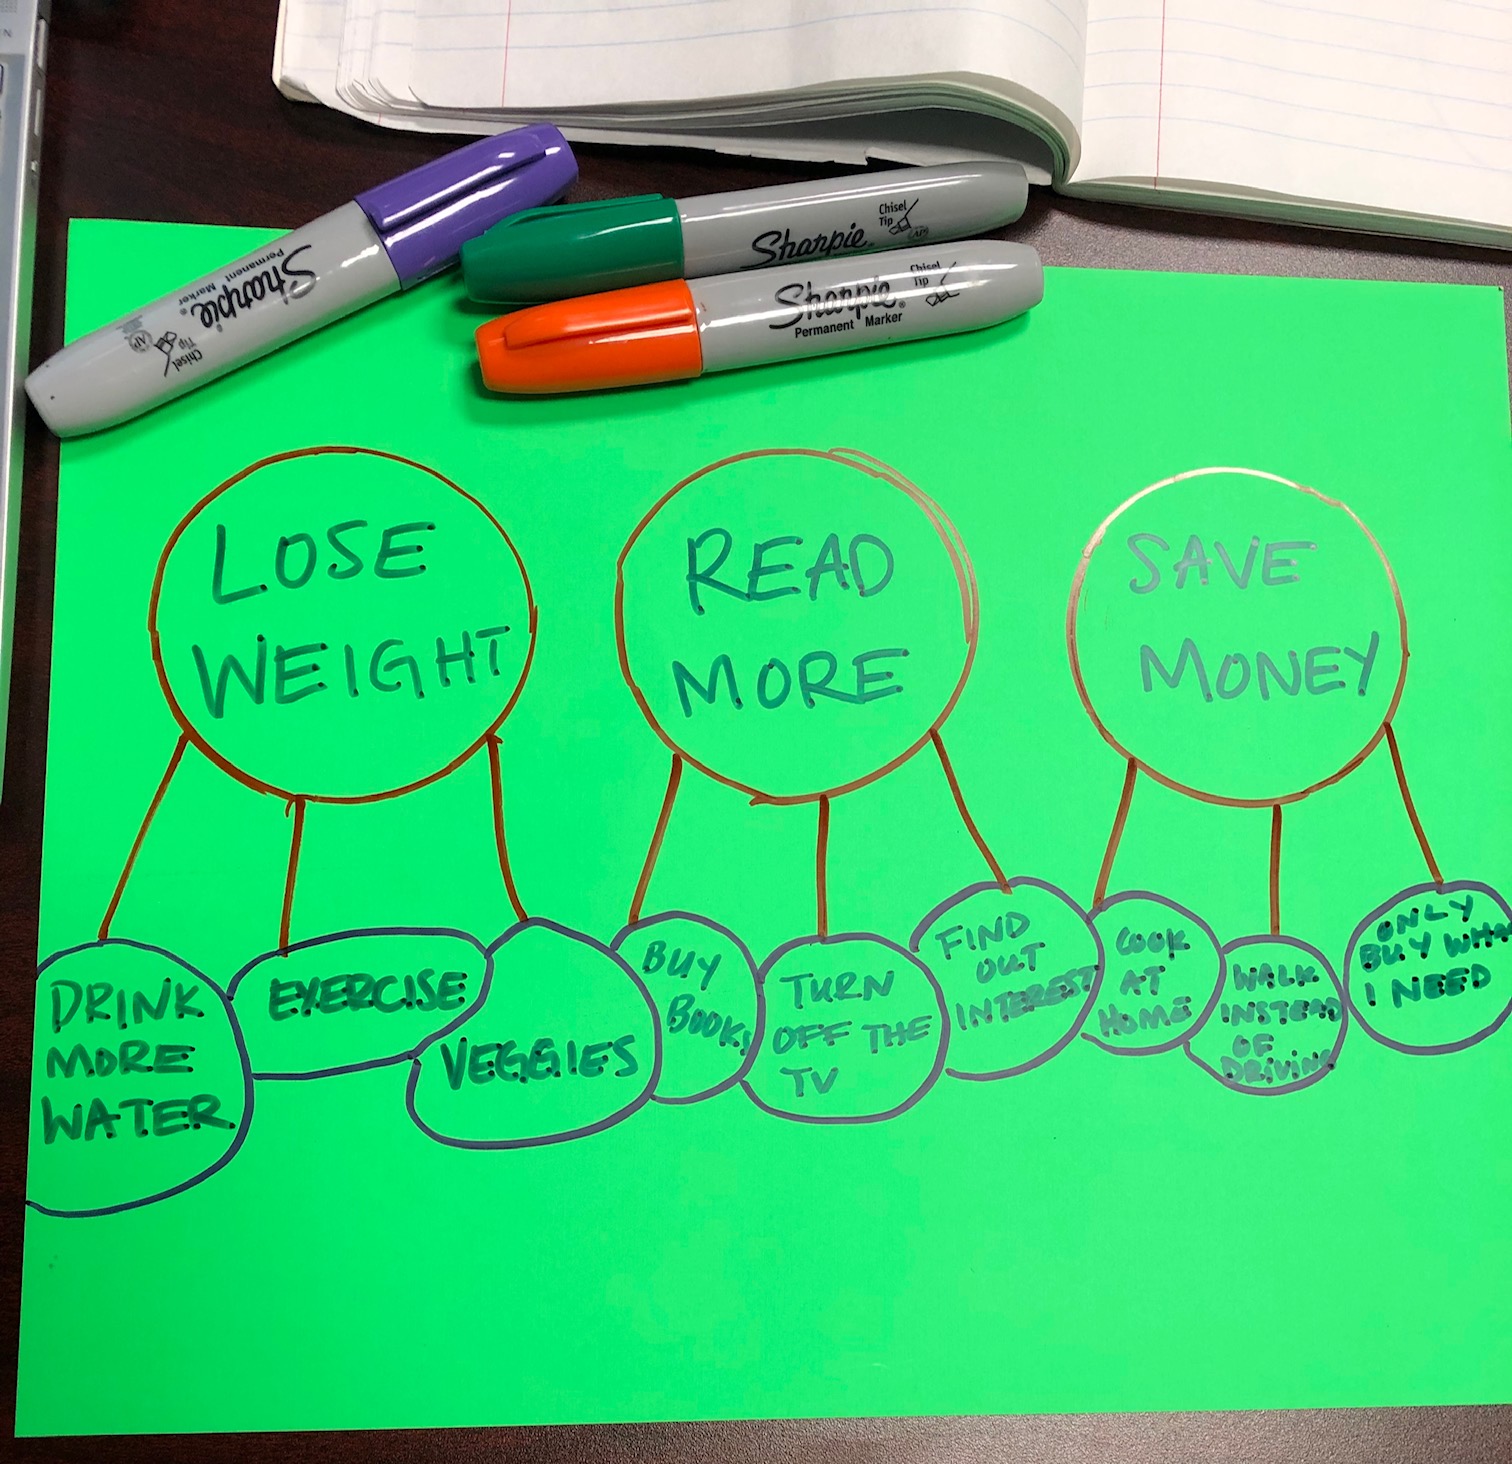 Sharpie
Permanent
Marker
Chisel
Tip
AP
Sharpie
Chisel
Tip
AP
Sharpie
Permanent Marker
Chisel
Tip
LOSE
WEIGHT
READ
MORE
SAVE
MONEY
DRINK
MORE
WATER
EXERCISE
VEGGIES
BUY
BOOKS
TURN
OFF THE
TV
FIND
OUT
INTEREST
COOK
AT
HOME
WALK
INSTEAD
OF
DRIVING
ONLY
BUY WHA
I NEED